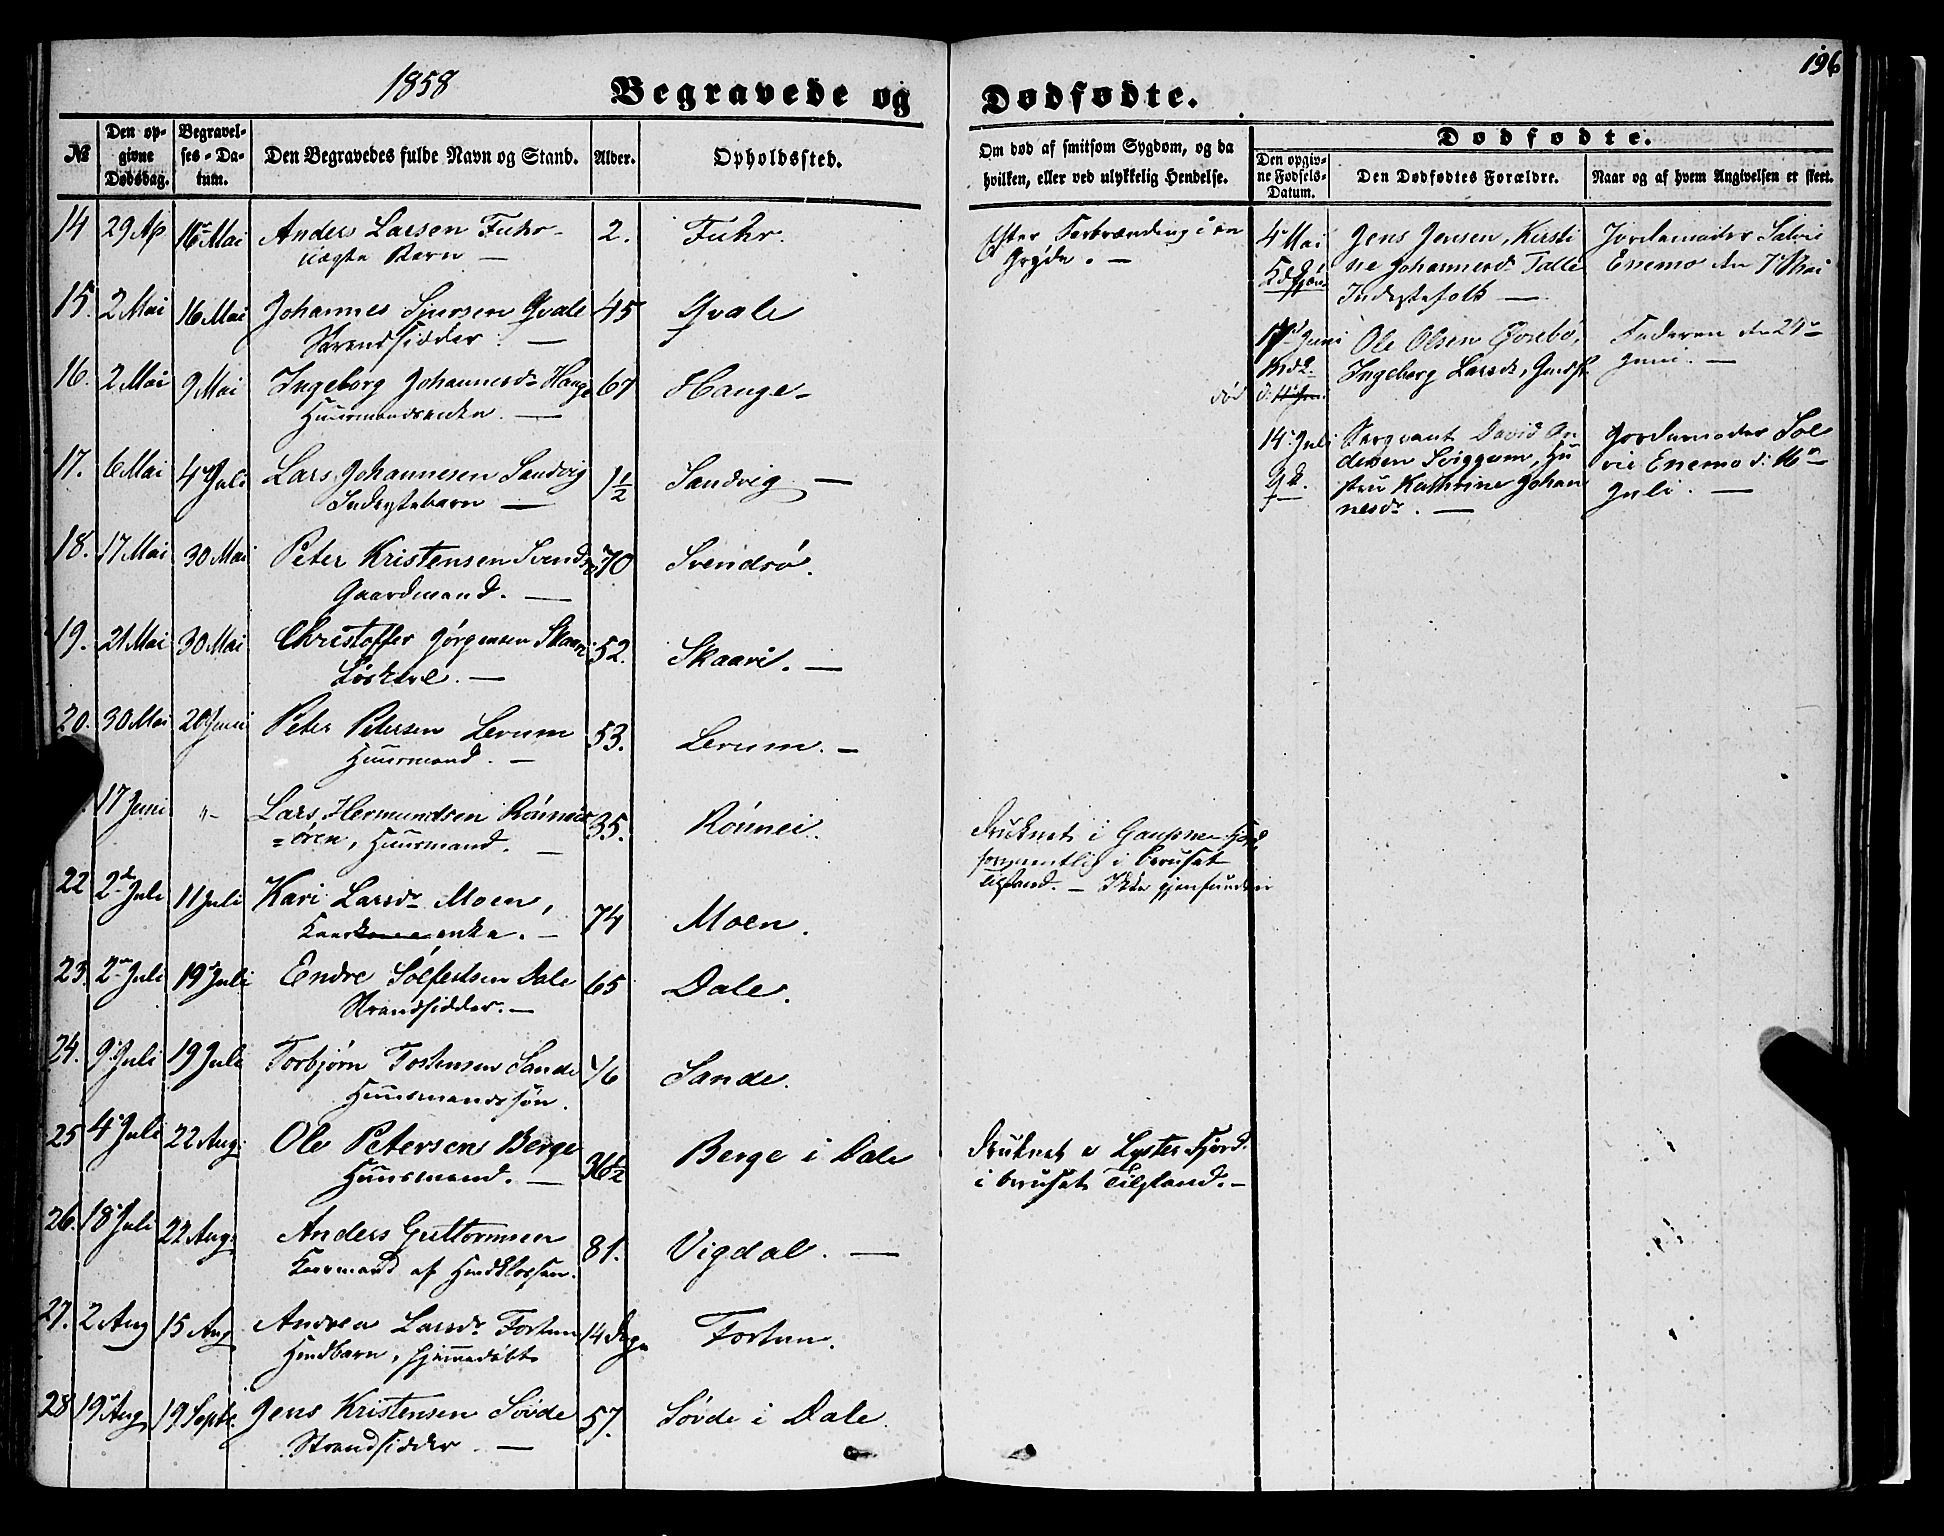 1858
Begravede og
Dødfødte.
196
№
Den opgivne Dødsdag.
Begravelses-Datum.
Den Begravedes fulde Navn og Stand.
Alder.
Opholdssted.
Om død af smitsom Sygdom, og da hvilken, eller ved ulykkelig Hendelse.
Dødfødte.
Den opgivne Fødsels-Datum.
Den Dødfødtes Forældre.
Naar og af hvem Angivelsen er skeet.
14 29 Ap 16 Mai Anders Larsen Fuhr 2. Fuhr. Efter Forbrænding i en
ægte Barn — Gryde. —
15. 2 Mai 16 Mai Johannes Sjursen Qvale 45 Qvale
Strandsidder. —
16. 2 Mai 9 Mai Ingeborg Johannesdr Hauge 67 Hauge
Huusmandsenke. —
17. 6 Mai 4 Juli Lars Johannesen Sandvig 1½ Sandvig —
Inderstebarn —
18. 17 Mai 30 Mai Peter Kristensen Svendsø 70 Svendsø.
Gaardmand. —
19. 21 Mai 30 Mai Christoffer Jørgensen Skaari 52. Skaari. —
Løskarl. —
20. 30 Mai 20 Juni Peter Petersen Lerum 53. Lerum. —
Huusmand. —
17 Juni "- Lars Hermundsen Rönnei 35. Rönnei. Druknet i Gaupne Fjord
=ören, Huusmand. — formentlig i beruset
Tilstand. — Ikke gjenfunden
22 2 Juli 11 Juli Kari Larsdr Moen, 74 Moen.
enke. —
23. 2 Juli 19 Juli Endre Solfestsen Dale 65 Dale.
Strandsidder. —
24. 9 Juli 19 Juli Torbjørn Tostensen Sande Sande.
Huusmandssøn.
25 4 Juli 22 Aug. Ole Petersen Berge 36½ Berge i Dale Druknet i Lyster Fjord
Huusmand. — i beruset Tilstand. —
26. 18 Juli 22 Aug. Anders Guttormsen 81. Vigdal. —
Kaarmand af
27. 2 Aug 15 Aug Andrea Larsdr Fortun 14 Dage Fortun.
hjemmedøbt
28 19 Aug 19 Septr. Jens Kristensen Søvde 57. Søvde i Dale.
Strandsidder. —
4 Mai Jens Jensen, Kirsti Jordemoder Salvi
ne Johannesdr Talle Enemo den 7 Mai
Inderstefolk —
17 Juni Ole Olsen Øvrebø, Faderen den 24
Ingeborg Larsdr, Juni. —
død
14 Juli Sergeant David An Jordemoder Sal
dersen Sviggum, Hu vie Enemo d: 16
stru Kathrine Johan Juli. —
nesdr. —